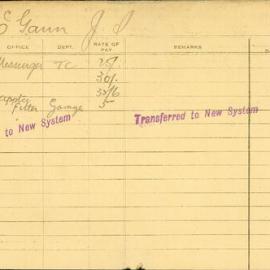 Gann J. S.
OFFICE DEPT. RATE OF PAY REMARKS
Messenger TC 25/.
30/.
32/6
Fitter Garage
to New System Transferred to New System